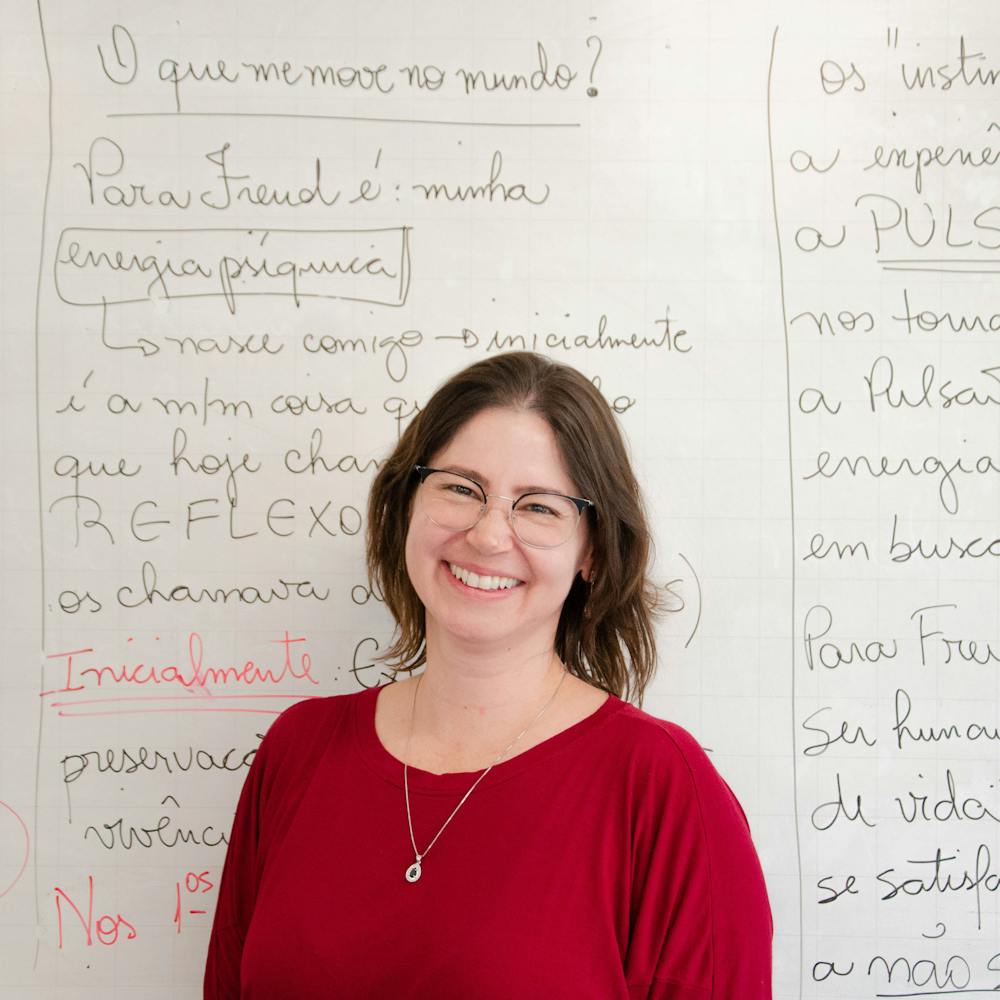 O que me move no mundo?
Para Freud é: minha
energia psíquica
nasce comigo → inicialmente
é a msm coisa
que hoje
REFLEXO
os chamava
Inicialmente:
preservaçã
Nos 1os
os "instin
a experiê
a PULS
nos torna
a Pulsã
energia
em busca
Para Freu
Ser human
de vida
se satisfa
a não s